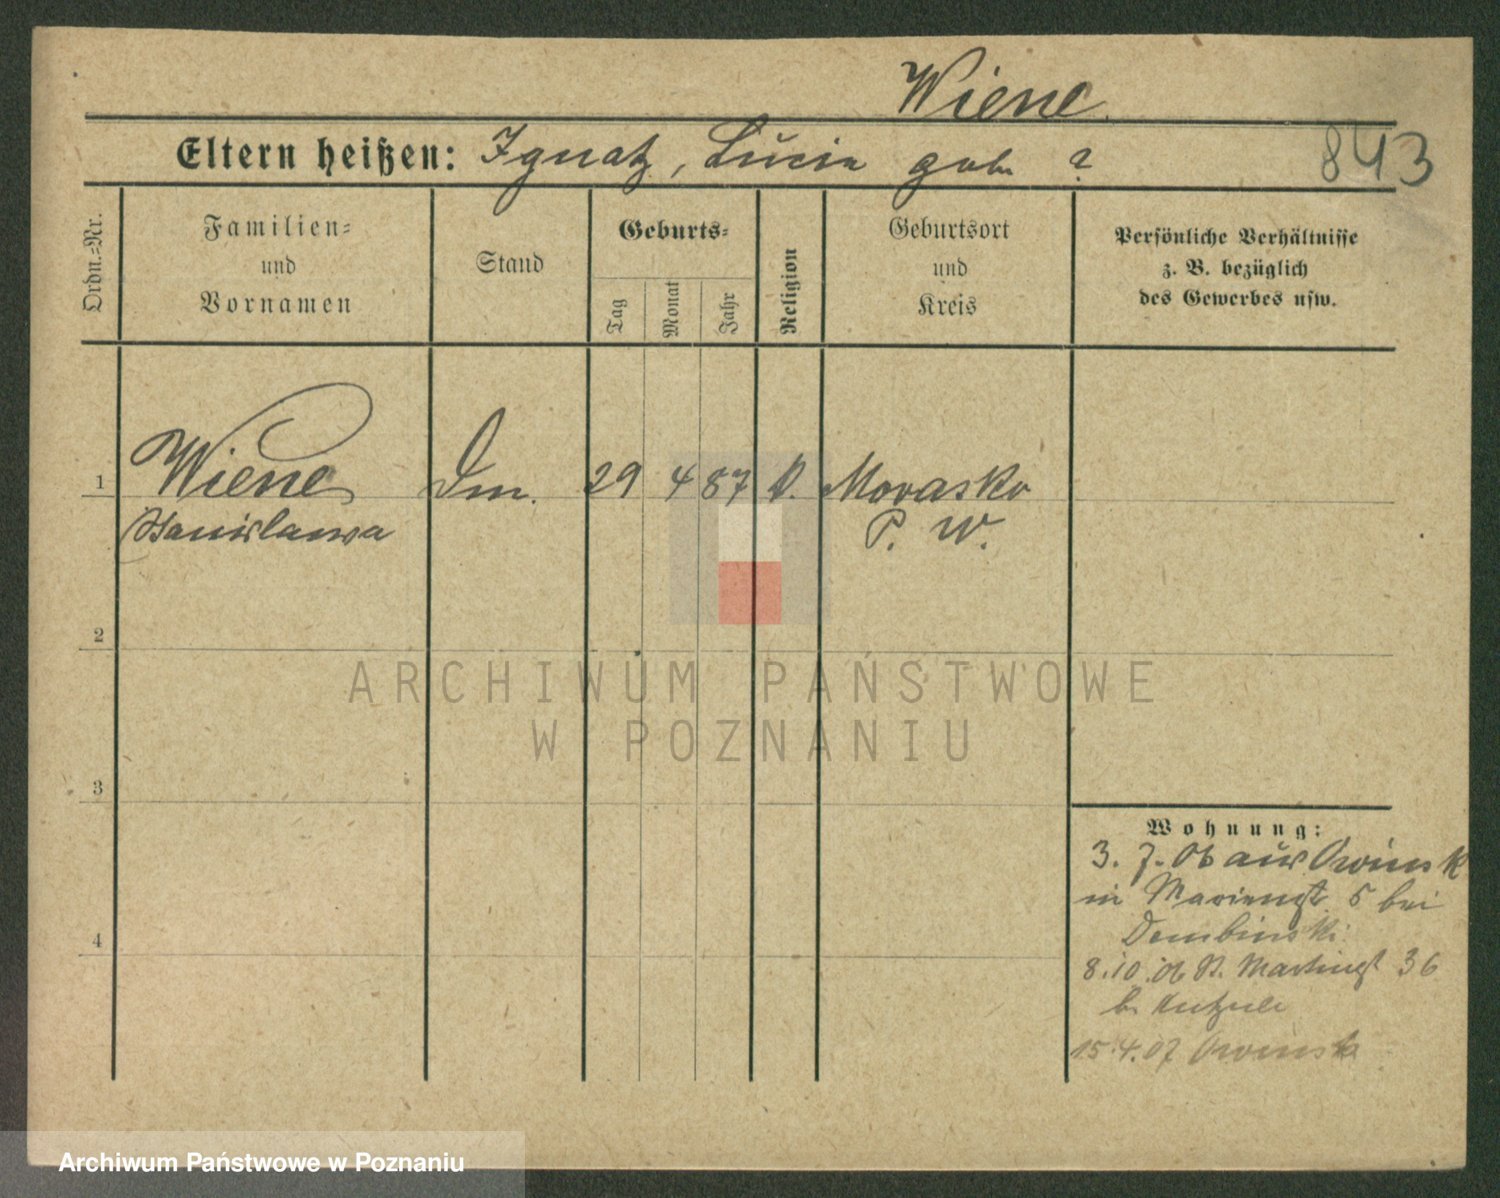 Wiene
Eltern heißen: Ignatz, Lucia geb. ?
843
Ordn.-Nr.
Familien-
und
Vornamen
Stand
Geburts-
Tag
Monat
Jahr
Religion
Geburtsort
und
Kreis
Persönliche Verhältnisse
z. B. bezüglich
des Gewerbes usw.
1 Wiene 29 4 87 Morasko
Stanislawa P. W.
2
ARCHIWUM PAŃSTWOWE
W POZNANIU
3
4
Wohnung:
3. 7. 06 aus Owinsk
in 5 bei
Dembinski
8.10.06 St. Martinst 36
b.
15.4.07 Owinsk
Archiwum Państwowe w Poznaniu